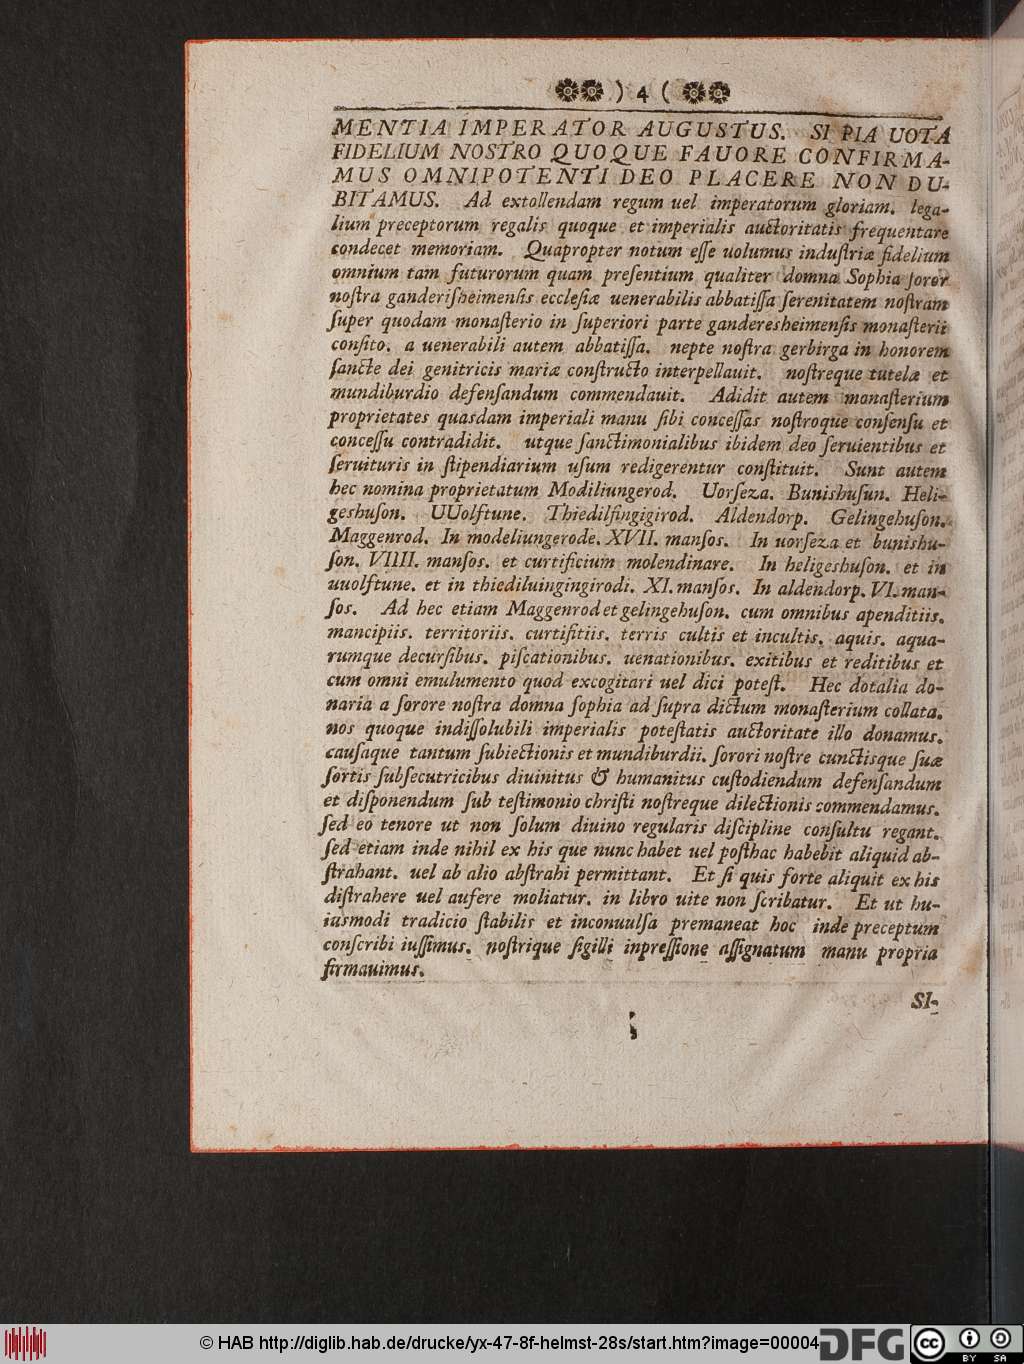 ) 4 (
MENTIA IMPERATOR AUGUSTUS. SI PIA UOTA
FIDELIUM NOSTRO QUOQUE FAUORE CONFIRMA-
MUS OMNIPOTENTI DEO PLACERE NON DU-
BITAMUS. Ad extollendam regum uel imperatorum gloriam. lega-
lium preceptorum regalis quoque et imperialis auctoritatis frequentare
condecet memoriam. Quapropter notum eſſe uolumus induſtriæ fidelium
omnium tam futurorum quam preſentium qualiter domna Sophia ſoror
noſtra ganderiſheimenſis eccleſiæ uenerabilis abbatiſſa ſerenitatem noſtram
ſuper quodam monaſterio in ſuperiori parte ganderesheimenſis monaſterii
conſito. a uenerabili autem abbatiſſa. nepte noſtra gerbirga in honorem
ſancte dei genitricis mariæ conſtructo interpellauit. noſtreque tutelæ et
mundiburdio defenſandum commendauit. Adidit autem monaſterium
proprietates quasdam imperiali manu ſibi conceſſas noſtroque conſenſu et
conceſſu contradidit. utque ſanctimonialibus ibidem deo ſeruientibus et
ſeruituris in ſtipendiarium uſum redigerentur conſtituit. Sunt autem
hec nomina proprietatum Modiliungerod. Uorſeza. Bunishuſun. Heli-
geshuſon. UUolftune. Thiedilfingigirod. Aldendorp. Gelingehuſon.
Maggenrod. In modeliungerode. XVII. manſos. In uorſeza et bunishu-
ſon. VIIII. manſos. et curtificium molendinare. In heligeshuſon. et in
uuolftune. et in thiediluingingirodi. XI. manſos. In aldendorp. VI. man-
ſos. Ad hec etiam Maggenrod et gelingehuſon. cum omnibus apenditiis.
mancipiis. territoriis. curtifitiis. terris cultis et incultis. aquis. aqua-
rumque decurſibus. piſcationibus. uenationibus. exitibus et reditibus et
cum omni emulumento quod excogitari uel dici poteſt. Hec dotalia do-
naria a ſorore noſtra domna ſophia ad ſupra dictum monaſterium collata.
nos quoque indiſſolubili imperialis poteſtatis auctoritate illo donamus.
cauſaque tantum ſubiectionis et mundiburdii. ſorori noſtre cunctisque ſuæ
ſortis ſubſecutricibus diuinitus & humanitus cuſtodiendum defenſandum
et diſponendum ſub teſtimonio chriſti noſtreque dilectionis commendamus.
ſed eo tenore ut non ſolum diuino regularis diſcipline conſultu regant.
ſed etiam inde nihil ex his que nunc habet uel poſthac habebit aliquid ab-
ſtrahant. uel ab alio abſtrahi permittant. Et ſi quis forte aliquit ex his
diſtrahere uel aufere moliatur. in libro uite non ſcribatur. Et ut hu-
iusmodi tradicio ſtabilis et inconuulſa premaneat hoc inde preceptum
conſcribi iuſſimus. noſtrique ſigilli inpreſſione aſſignatum manu propria
firmauimus.
SI-
© HAB http://diglib.hab.de/drucke/yx-47-8f-helmst-28s/start.htm?image=00004
DFG
cc BY SA